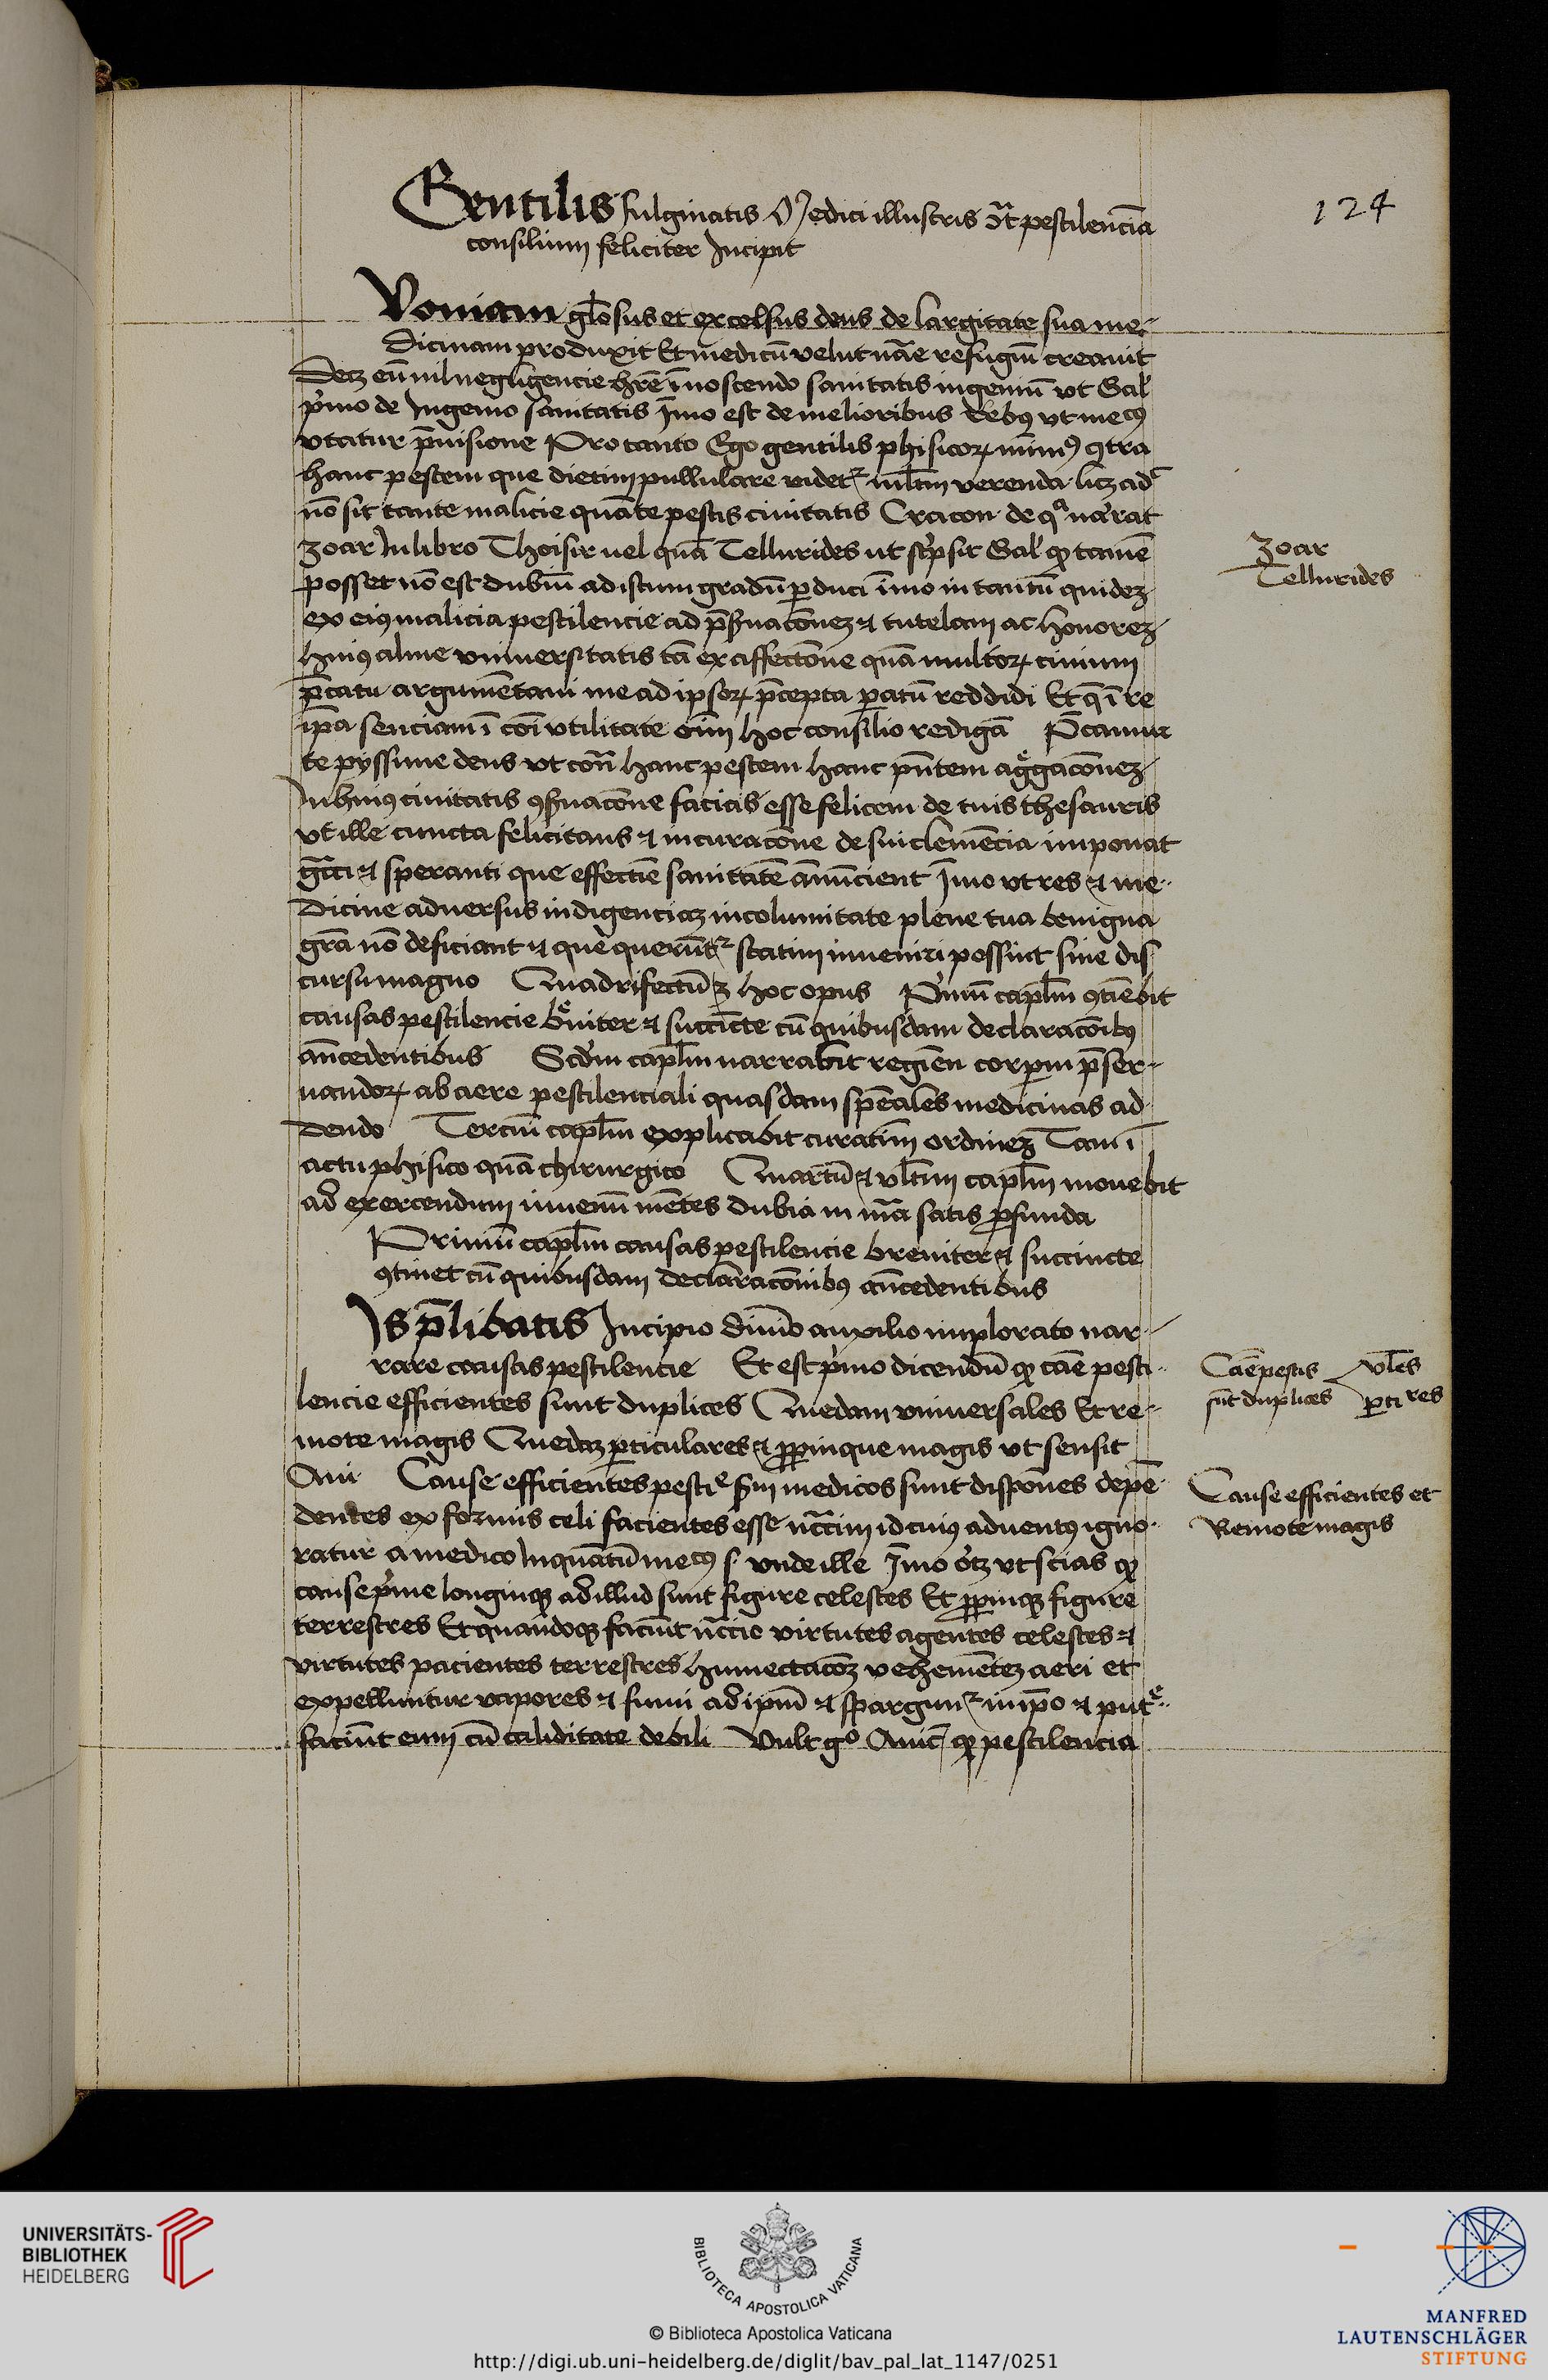 Gentilis fulginatis Medici illustris 9t̄ pestilenciā
124
consilium feliciter Incipit
Voniam gl̄osus et excelsus deus de largitate sua me-
dicinam produxit Et medicū velut nāe refugiū creauit
Decz eū nil negligencie hr̄e īnoscendo sanitatis ingeniū vt Gal
p̄mo de Ingenio sanitatis Īmo est de melioribus Rebꝫ vt mecꝰ
vtatur p̄uisione Pro tanto Ego gentilis phisicoꝝ minīꝰ ꝯtra
hanc pestem que dietim pullulare videtᷣ ml̄tm verenda licz adᶜ
nō sit tante malicie quāte pestis ciuitatis Cracon de qᵃ nar̄rat
zoar In libro Thoisir uel quā Tellurides ut sc̄psit Gal ꝙ tamē
posset nō est dubiū ad istum gradū ꝑduci īmo in tantū quidez
ex eiꝰ malicia pestilencie ad p̄ẜuacōnez ⁊ tutelam ac honorez
huiꝰ alme vniuersitatis tā ex affectōne quā multoꝝ ciuium
p̄catu argumētaui me ad ipsoꝝ p̄cepta ꝑatū reddidi Et q̄ ī re
ip̄a senciam ī cōi vtilitate oīm hoc consilio redigā P̄camur
te pyssime deus vt cōtr̄ hanc pestem hanc pn̄tem agg̃gacōnez
In huiꝰ ciuitatis ꝯẜuacōne facias esse felicem de tuis thesauris
vt ille cuncta felicitans ⁊ in curacōne de sui clemēcia imponat
gr̄aci ⁊ speranti que effectiē sanitatē ānūcient Īmo vt res ⁊ me-
dicine aduersus indigenciaz incolumitate plene tua benigna
gr̄a nō deficiant ⁊ que querūtᷣ statim inueniri possint sine dis
cursu magno Quadrifectū ē hoc opus P̄mū capl̄m ꝯtiēbit
causas pestilencie br̄uiter ⁊ succīcte cū quibusdam declaracōibꝫ
ān̄cedentibus Scdm̄ capl̄m narrabit regiēn corpm̄ p̄ser-
uandoꝝ ab aere pestilenciali quasdam spēales medicinas ad
dendo Terciū capl̄m explicabit curatīm ordinez Tam ī
actu phisico quā chirurgico Quartū ⁊ vl̄tim capl̄m mouebit
ad exercendum iuuenū mētes dubia in mā satis ꝓfunda
Primū capl̄m causas pestilencie breuiter ⁊ succincte
ꝯtinet cū quibusdam declaracōnibꝫ ān̄cedentibus
Is p̄libatis Incipio diuīo auxilio implorato nar-
rare causas pestilencie Et est p̄mo dicendū ꝙ cāe pesti-
lencie efficientes sunt duplices Quedam vniuersales Et re-
mote magis Quedaz ꝑticulares ⁊ ꝓpinque magis vt sensit
Aui Cause efficientes pestiᵉ ẜm medicos sunt dispōnes depē-
dentes ex formis celi facientes esse nc̄cim id cuiꝰ aduentꝰ igno-
ratur a medico Inquātū mecꝰ s. vnde ille Īmo otz vt scias ꝙ
cause p̄me longinqꝫ ad illud sunt figure celestes Et ꝓpinqꝫ figure
terrestres Et quandoqꝫ faciūt nc̄cie virtutes agentes celestes ⁊
virtutes pacientes terrestres humectacōz vehemētez aeri et
expelluntur vapores ⁊ fumi ad ipm̄ ⁊ spargunᷣ in ip̄o ⁊ putᵉ-
faciūt eum cū caliditate debili Vult gᵒ Auic̄ ꝙ pestilencia
zoar
Tellurides
Cāe pestis
sūt duplices
vl̄es
ꝑticlres
Cause efficientes et
Remote magis
UNIVERSITÄTS-
BIBLIOTHEK
HEIDELBERG
BIBLIOTECA APOSTOLICA VATICANA
© Biblioteca Apostolica Vaticana
http://digi.ub.uni-heidelberg.de/diglit/bav_pal_lat_1147/0251
MANFRED
LAUTENSCHLÄGER
STIFTUNG